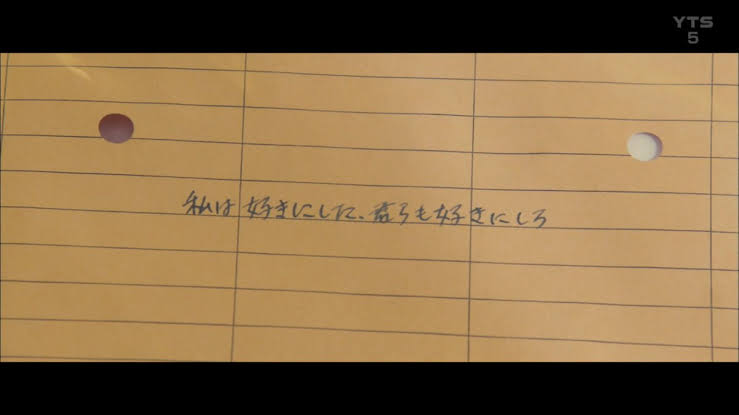 YTS
5
私は好きにした、君らも好きにしろ